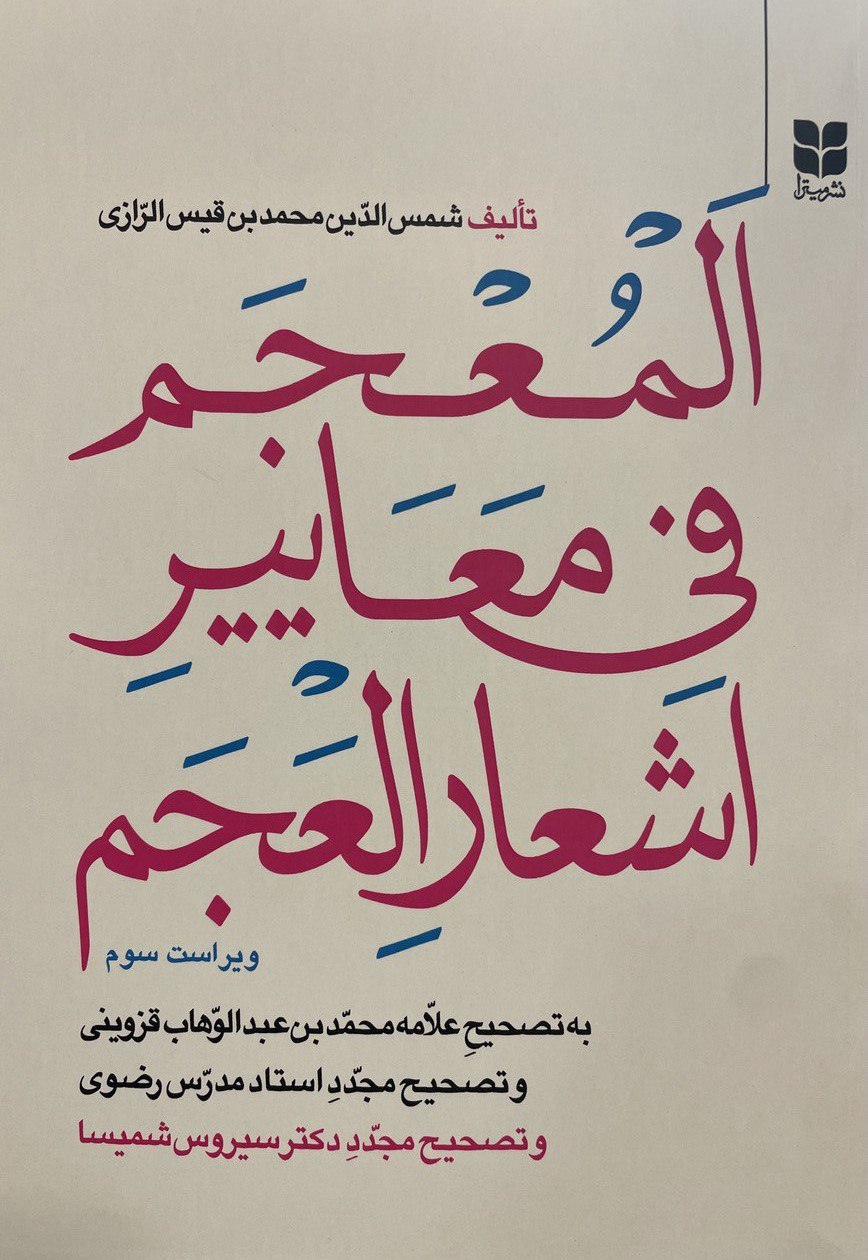 نشر میترا
تألیف شمس‌الدّین محمد بن قیس الرّازی
اَلْمُعْجَم
فی مَعَاییرِ
اَشعارِ الْعَجَم
ویراست سوم
به تصحیحِ علاّمه محمّد بن عبدالوّهاب قزوینی
و تصحیح مجدّدِ استاد مدرّس رضوی
و تصحیح مجدّدِ دکتر سیروس شمیسا